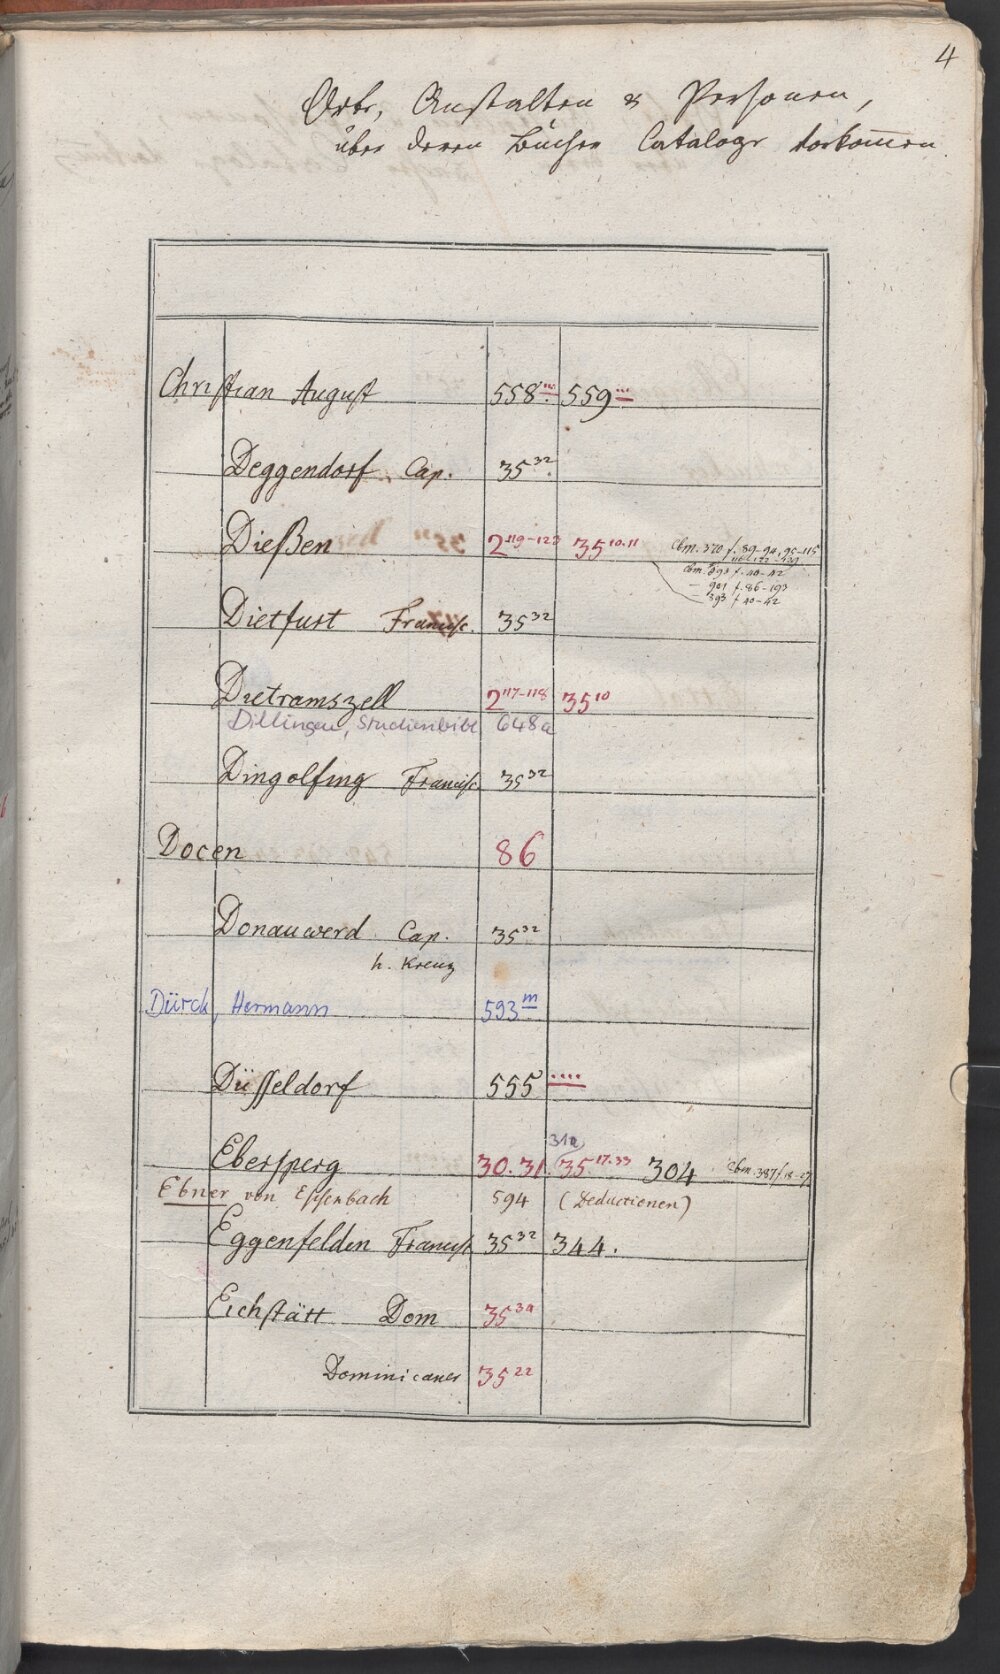 4
Orte, Anstalten & Personen,
über deren Bücher Cataloge vorkom̄en
Christian August 558 559
Deggendorf Cap. 35³²
Dießen 2¹¹⁹⁻¹²³ 35¹⁰·¹¹ Cbm. 370 f. 89-94, 95-115
Cbm. 393 f. 40-42
— 901 f. 86-193
393 f 40-42
Dietfurt Francisc. 35³²
Dietramszell 2¹¹⁷⁻¹¹⁸ 35¹⁰
Dillingen, Studienbibl 648a
Dingolfing Francisc. 35³²
Docen 86
Donauwerd Cap. 35³²
h. Kreuz
Dürck, Hermann 593ᵐ
Düsseldorf 555 ....
31a
Ebersperg 30. 31. 35¹⁷·³³ 304 Cbm. 387 f 18-27
Ebner von Eschenbach 594 (Deductionen)
Eggenfelden Francisc 35³² 344.
Eichstätt Dom 35³⁹
Dominicaner 35²²